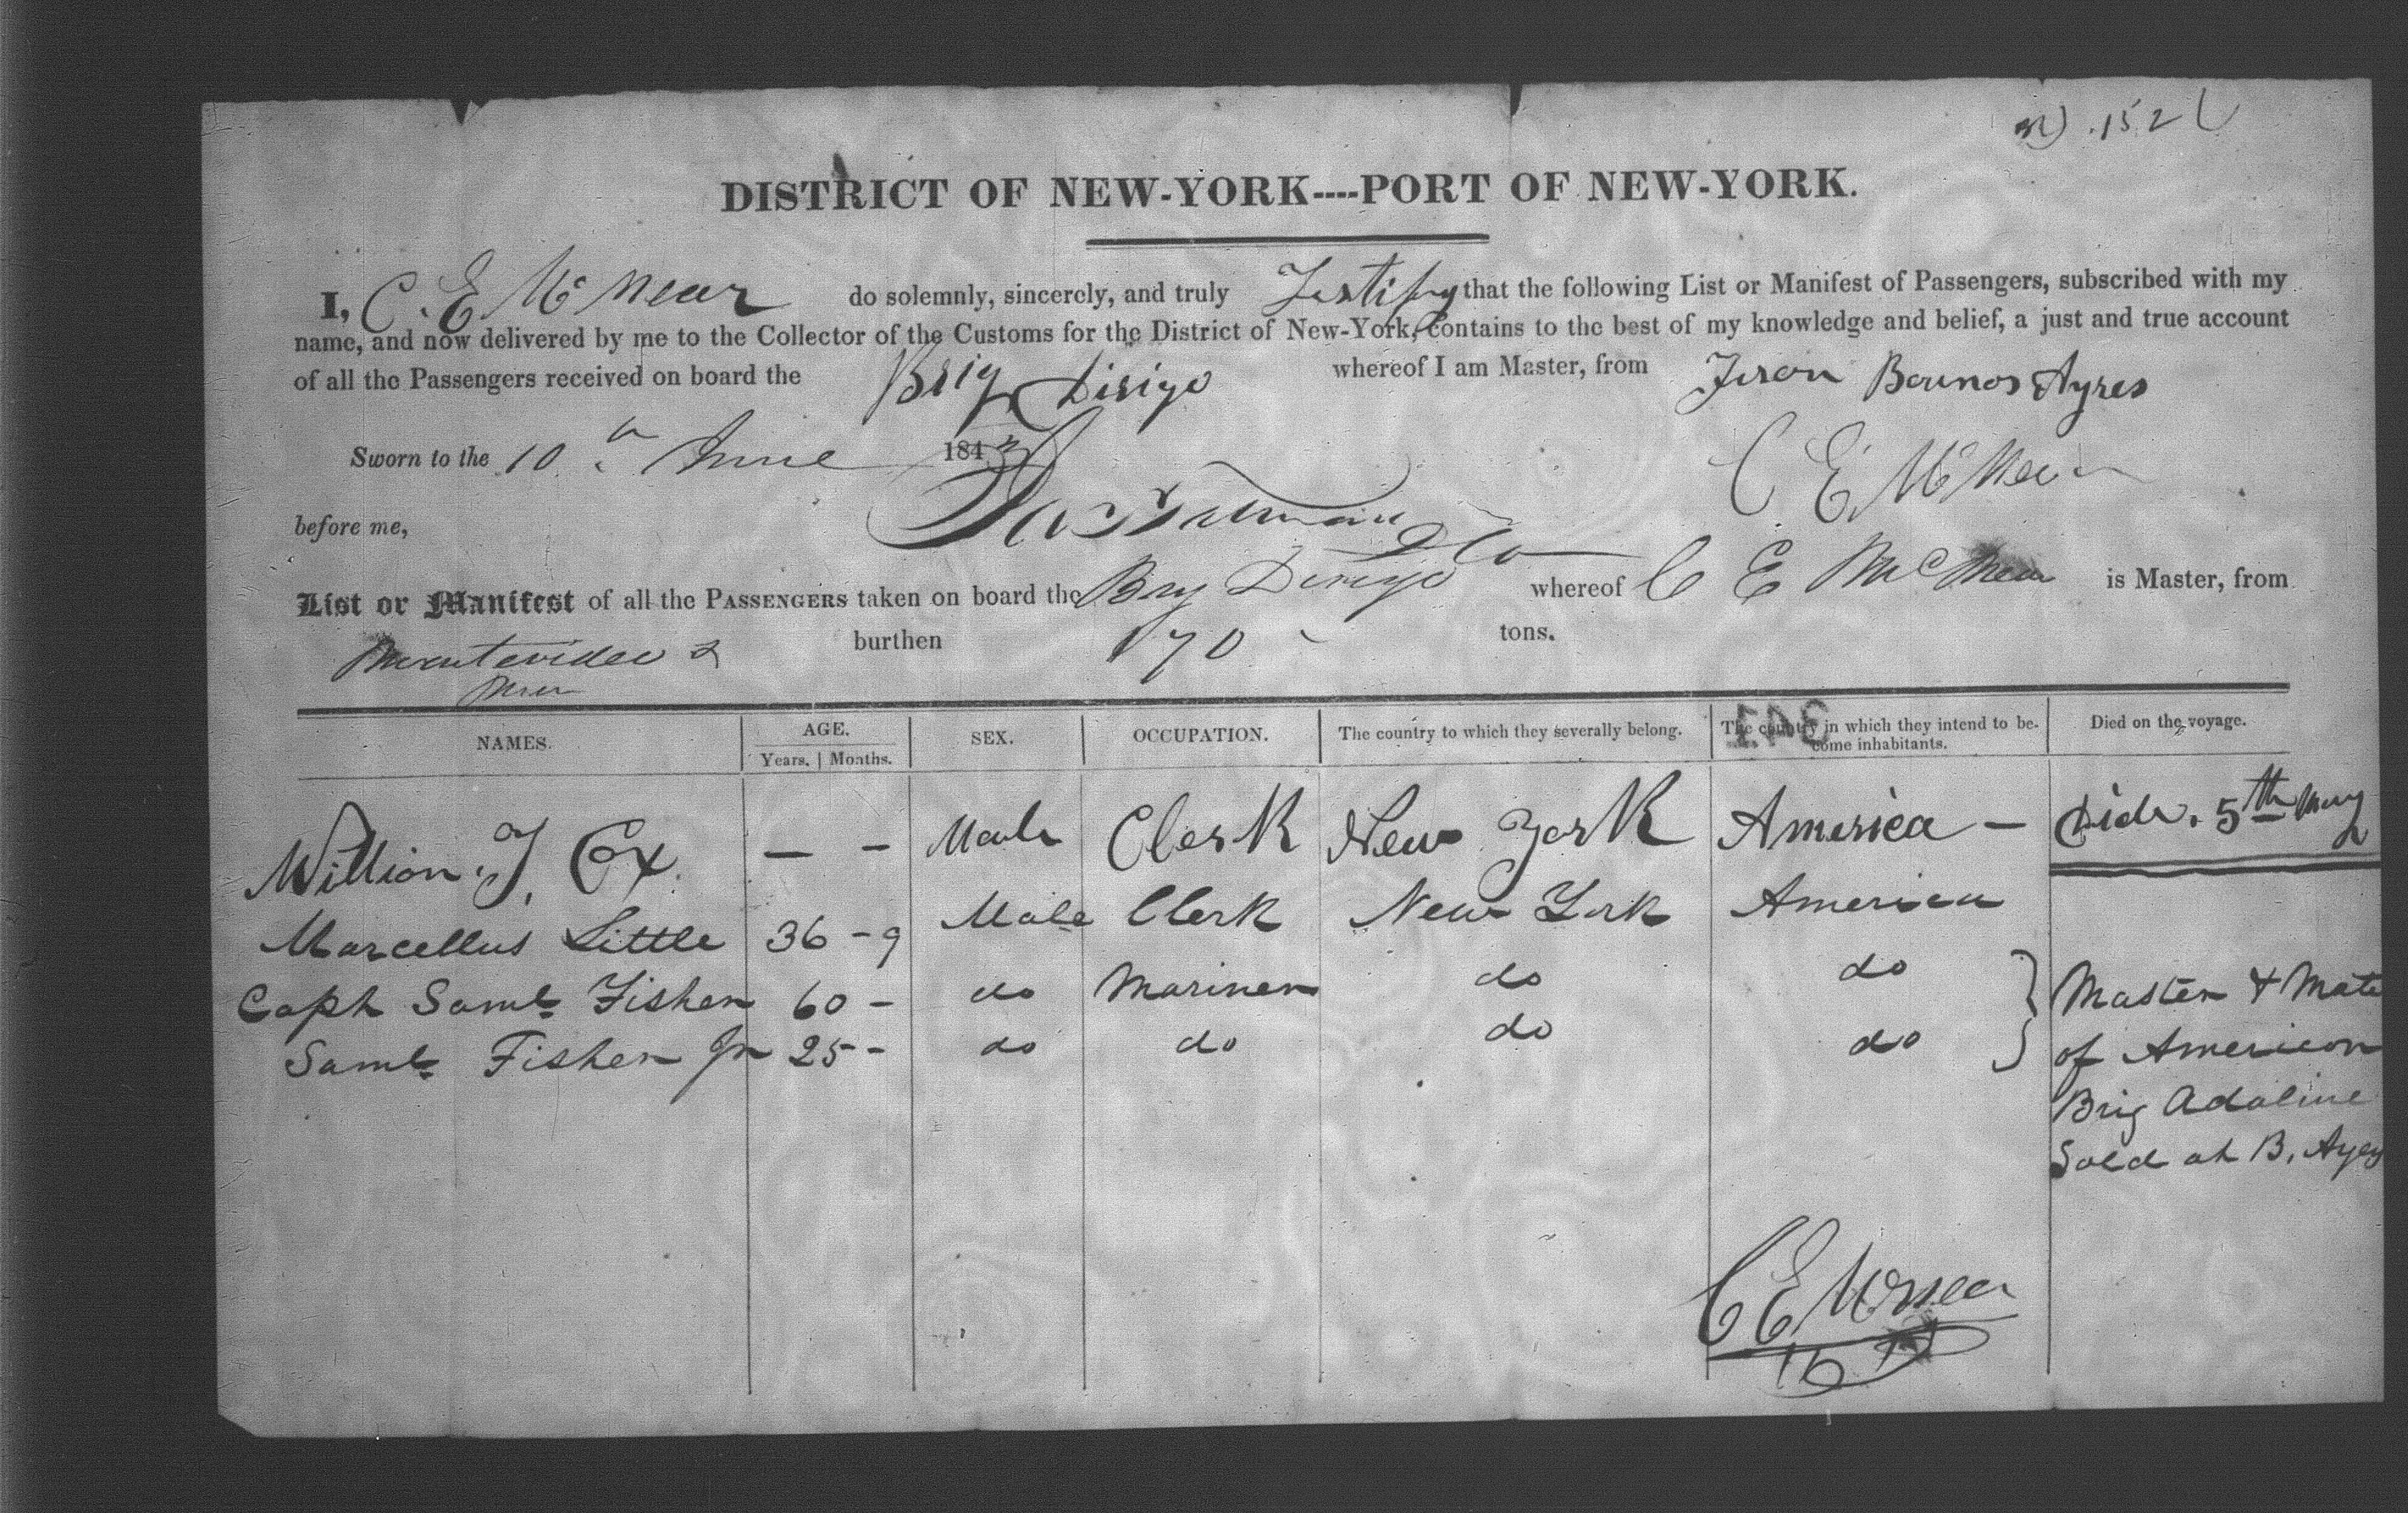 152
DISTRICT OF NEW-YORK----PORT OF NEW-YORK.
I, C. E McNear do solemnly, sincerely, and truly Testify that the following List or Manifest of Passengers, subscribed with my
name, and now delivered by me to the Collector of the Customs for the District of New-York, contains to the best of my knowledge and belief, a just and true account
of all the Passengers received on board the Brig Dirigo whereof I am Master, from From Bounos Ayres
Sworn to the 10th June 1843 C E McNear
before me,
List or Manifest of all the PASSENGERS taken on board the Brig Dirigo whereof C E McNear is Master, from
Montevideo burthen 170 tons.
NAMES. AGE. SEX. OCCUPATION. The country to which they severally belong. The country in which they intend to be- Died on the voyage.
Years. Months. come inhabitants.
Willion. J. Cox. — - Male Clerk New York America - Dide. 5th May
Marcellus Little 36 - 9 Male Clerk New York America
Capt Saml Fisher 60 - do Mariner do do Master & Mate
Saml Fisher Jr 25 - do do do do of American
Brig Adaline
Sold at B. Ayes
C E McNear